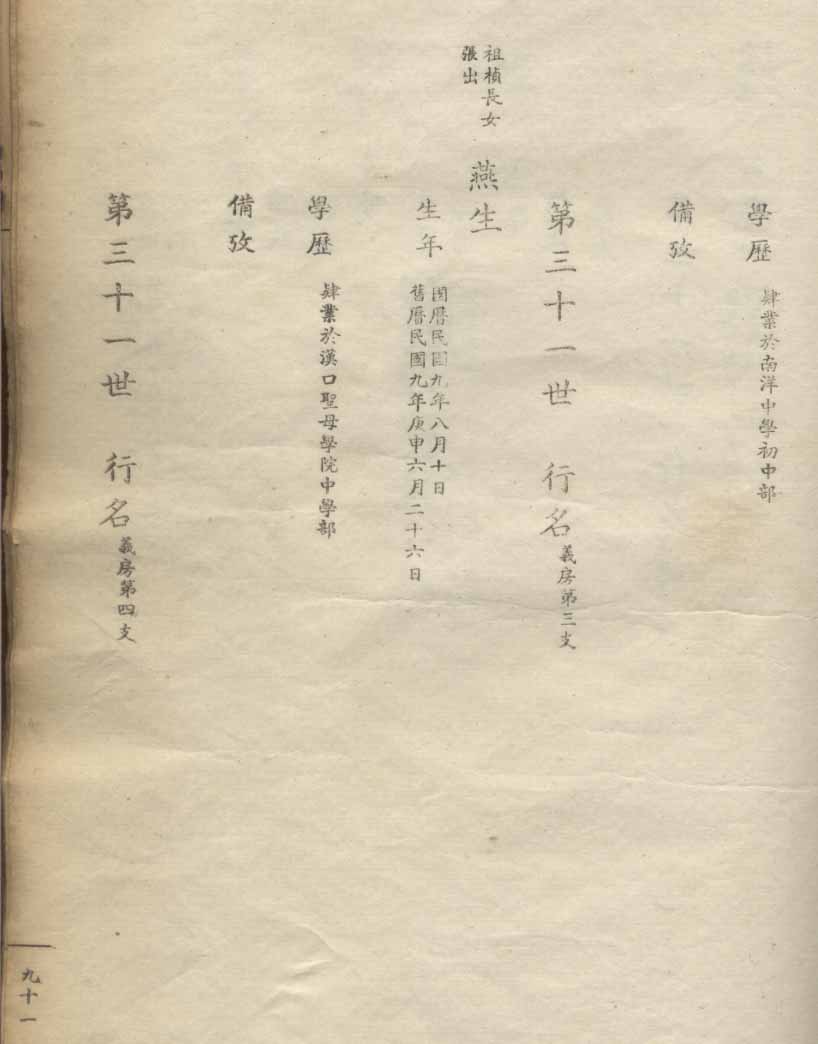 學歷 肄業於南洋中學初中部
備攷
第三十一世 行名 義房第三支
祖楨長女
張出
燕生
生年 國曆民國九年八月十日
舊曆民國九年庚申六月二十六日
學歷 肄業於漢口聖母學院中學部
備攷
第三十一世 行名 義房第四支
九十一